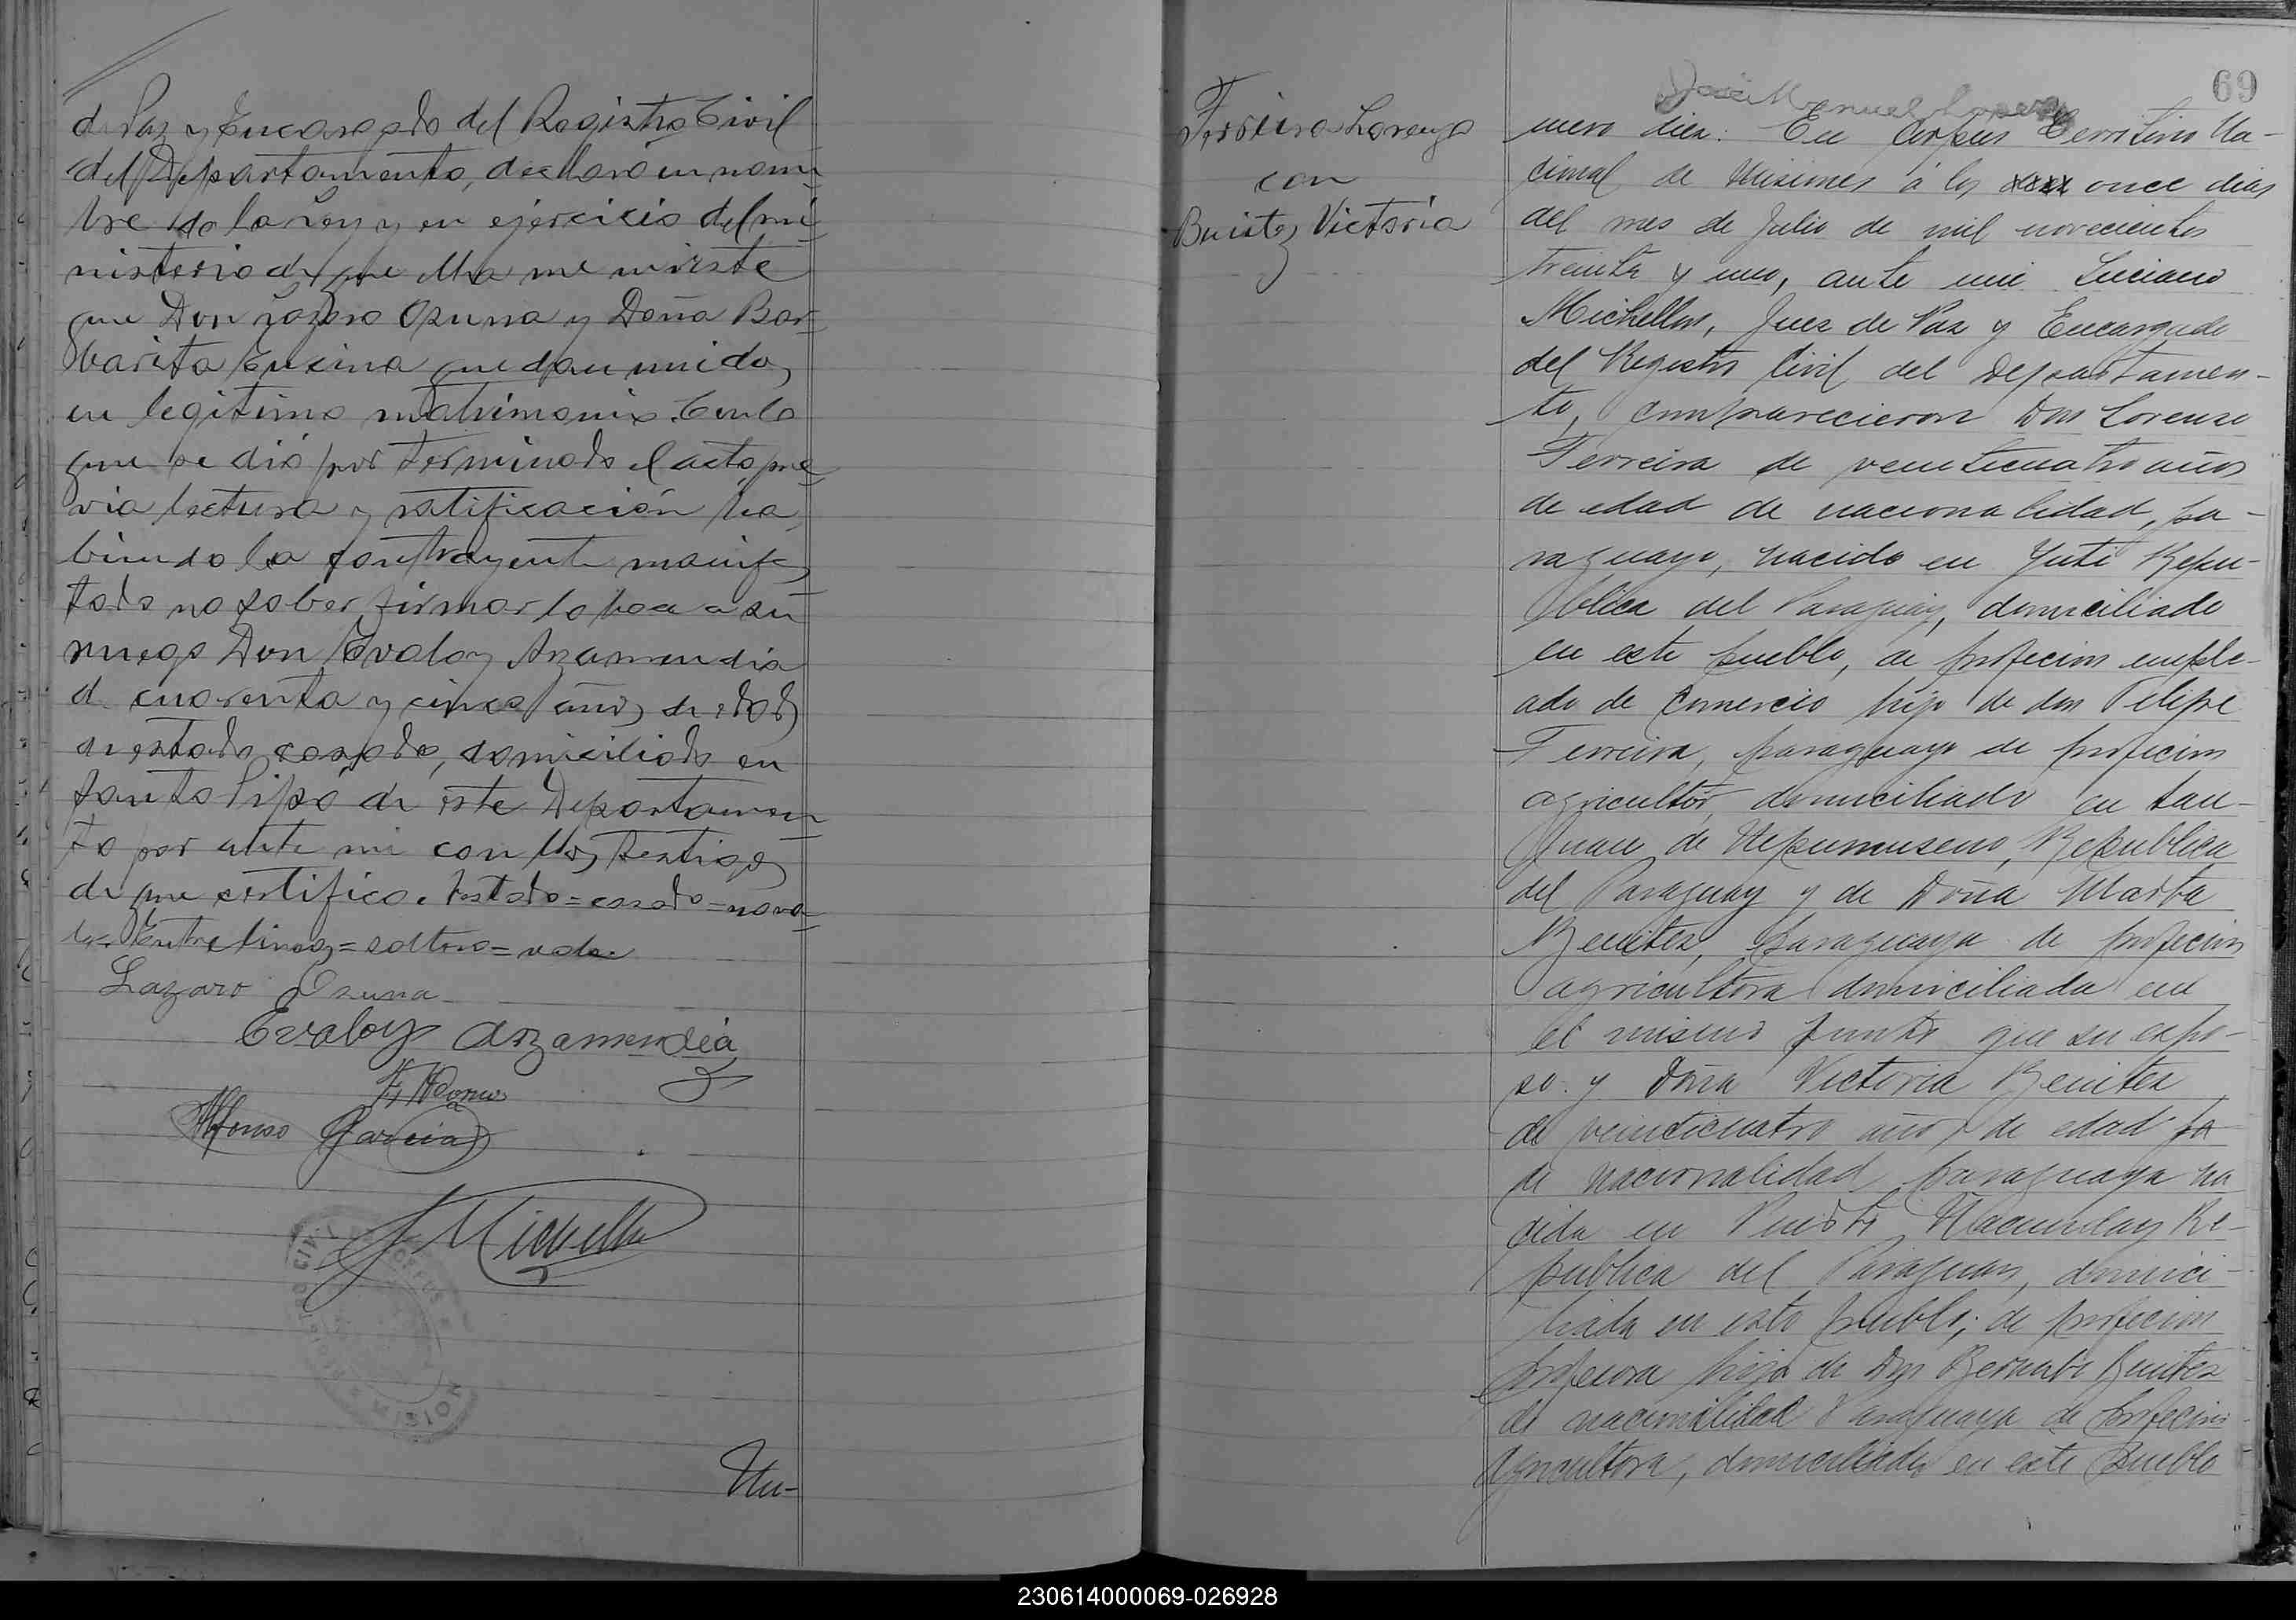 de Paz y Encargado del Registro Civil
del Departamento, declaró en nom-
bre de la Ley y en ejercicio del mi-
nisterio de que ella me inviste
que Don Lázaro Osuna y Doña Bar-
barita Encina quedan unidos
en legitimo matrimonio. Con lo
que se dió por terminado el acto, pre-
via lectura y ratificación ha-
biendo la contrayente manifes-
tado no saber firmar lo hace a su
ruego Don Evaloy Arzamendia
de cuarenta y cinco años de edad
de estado casado, domiciliado en
Santo Pipó de este Departamen-
to por ante mi con los testigos
de que certifico. Testado=casado=
Entre lineas=soltero=vale.
Lazaro Osuna
Evaloy Arzamendia
Alfonso Garcia
Michellon
REGISTRO CIVIL CORPUS MISIONES
Nu-
69
José Manuel
Ferreira Lorenzo
con
Benitez Victoria
mero diez: En Corpus Territorio Na-
cional de Misiones á los xxxx once dias
del mes de Julio de mil novecientos
treinta y uno, ante mi Luciano
Michellon, Juez de Paz y Encargado
del Registro Civil del Departamen-
to, comparecieron Don Lorenzo
Ferreira de venticuatro años
de edad de nacionalidad, pa-
raguayo, nacido en Yuti Repu-
blica del Paraguay, domiciliado
en este pueblo, de profecion emple-
ado de Comercio hijo de don Felipe
Ferreira, paraguayo de profecion
agricultor, domiciliado en San
Juan de Nepumuseno, Republica
del Paraguay y de Doña Marta
Benitez, paraguaya de profecion
agricultora domiciliada en
el mismo punto que su espo-
so. y Doña Victoria Benitez
de veinticuatro años de edad pa
de nacionalidad paraguaya na
cida en Puerto Re-
publica del Paraguay, domici-
liada en este pueblo; de profecion
profesora hija de Don Bernabe Benitez
de nacionalidad Paraguaya de profecion
Agricultora, domiciliado en este Pueblo
230614000069-026928